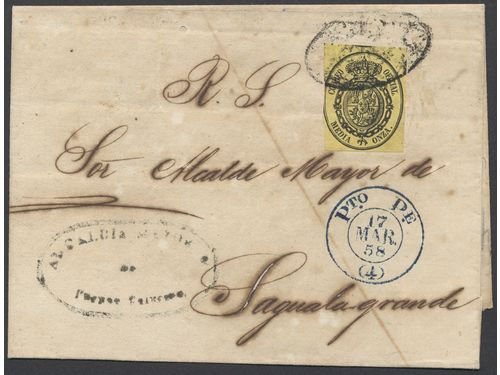 R. S.
CORREO OFICIAL
MEDIA ONZA.
Sor Alcalde Mayor de
PTO PE
17
MAR.
58
(4)
ALCALDIA MAYOR
DE
Puerto Principe.
Saguala-grande